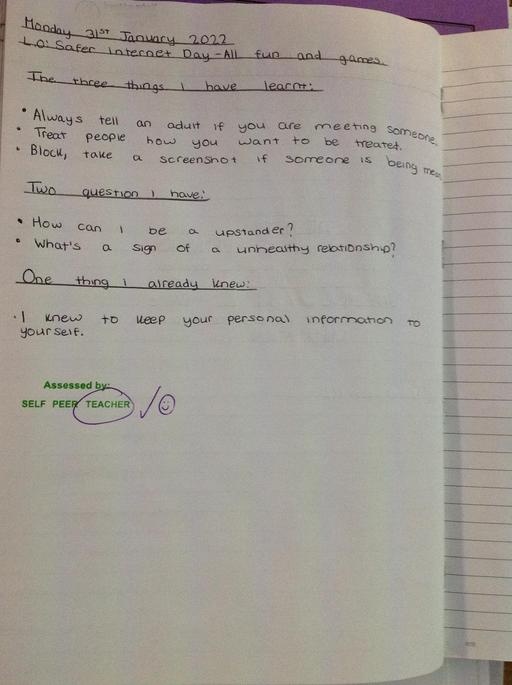 Monday 31ST January 2022
L.O: Safer internet Day - All fun and games.
The three things I have learnt:
• Always tell an adult if you are meeting someone.
• Treat people how you want to be treated.
• Block, take a screenshot if someone is being mean
Two question I have:
• How can I be a upstander?
• What's a sign of a unhealthy relationship?
One thing I already knew:
• I knew to keep your personal information to
yourself.
Assessed by:
SELF PEER TEACHER